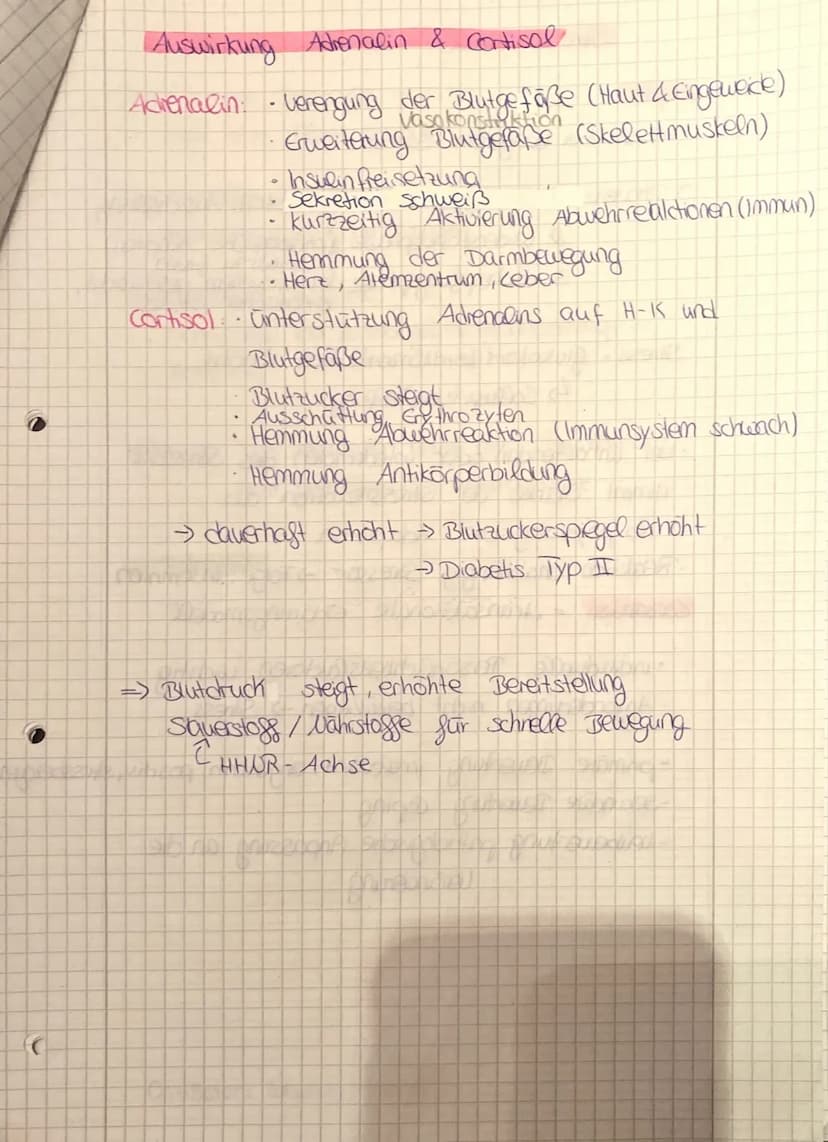 Auswirkung Adrenalin & Cortisol
Adrenalin: · Verengung der Blutgefäße (Haut & Eingeweide)
Vasokonstriktion
· Erweiterung Blutgefäße (Skelettmuskeln)
· Insulinfreisetzung
· Sekretion Schweiß
· kurzzeitig Aktivierung Abwehrreaktionen (Immun)
· Hemmung der Darmbewegung
· Herz, Atemzentrum, Leber
Cortisol: · Unterstützung Adrenalins auf H-K und
Blutgefäße
· Blutzucker steigt
· Ausschüttung Erythrozyten
· Hemmung Abwehrreaktion (Immunsystem schwach)
· Hemmung Antikörperbildung
→ dauerhaft erhöht → Blutzuckerspiegel erhöht
→ Diabetis Typ II
⇒ Blutdruck steigt, erhöhte Bereitstellung
Sauerstoff / Nährstoffe für schnelle Bewegung
HHNR - Achse